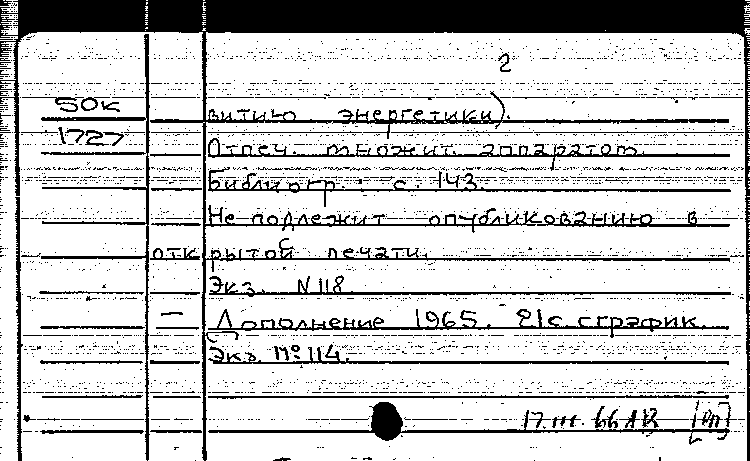 2
50к витию энергетики).
1727 Отпеч. множит. аппаратом.
Библиогр.: с. 143.
Не подлежит опубликованию в
открытой печати.
Экз. N118
— Дополнение 1965. 81с. с график.
Экз. №114.
17.III.66